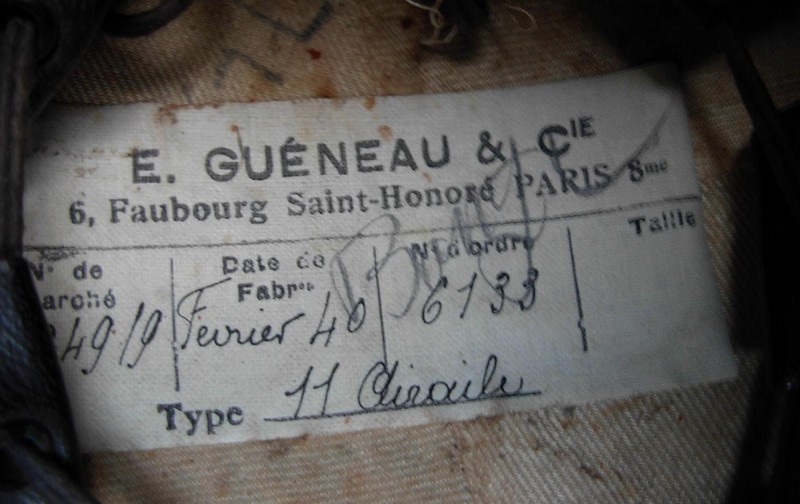 E. GUÉNEAU & CIE
6, Faubourg Saint-Honoré PARIS 8me
N° de Marché
Date de Fabron
N° d'ordre
Taille
4919
Fevrier 40
6133
Type 11